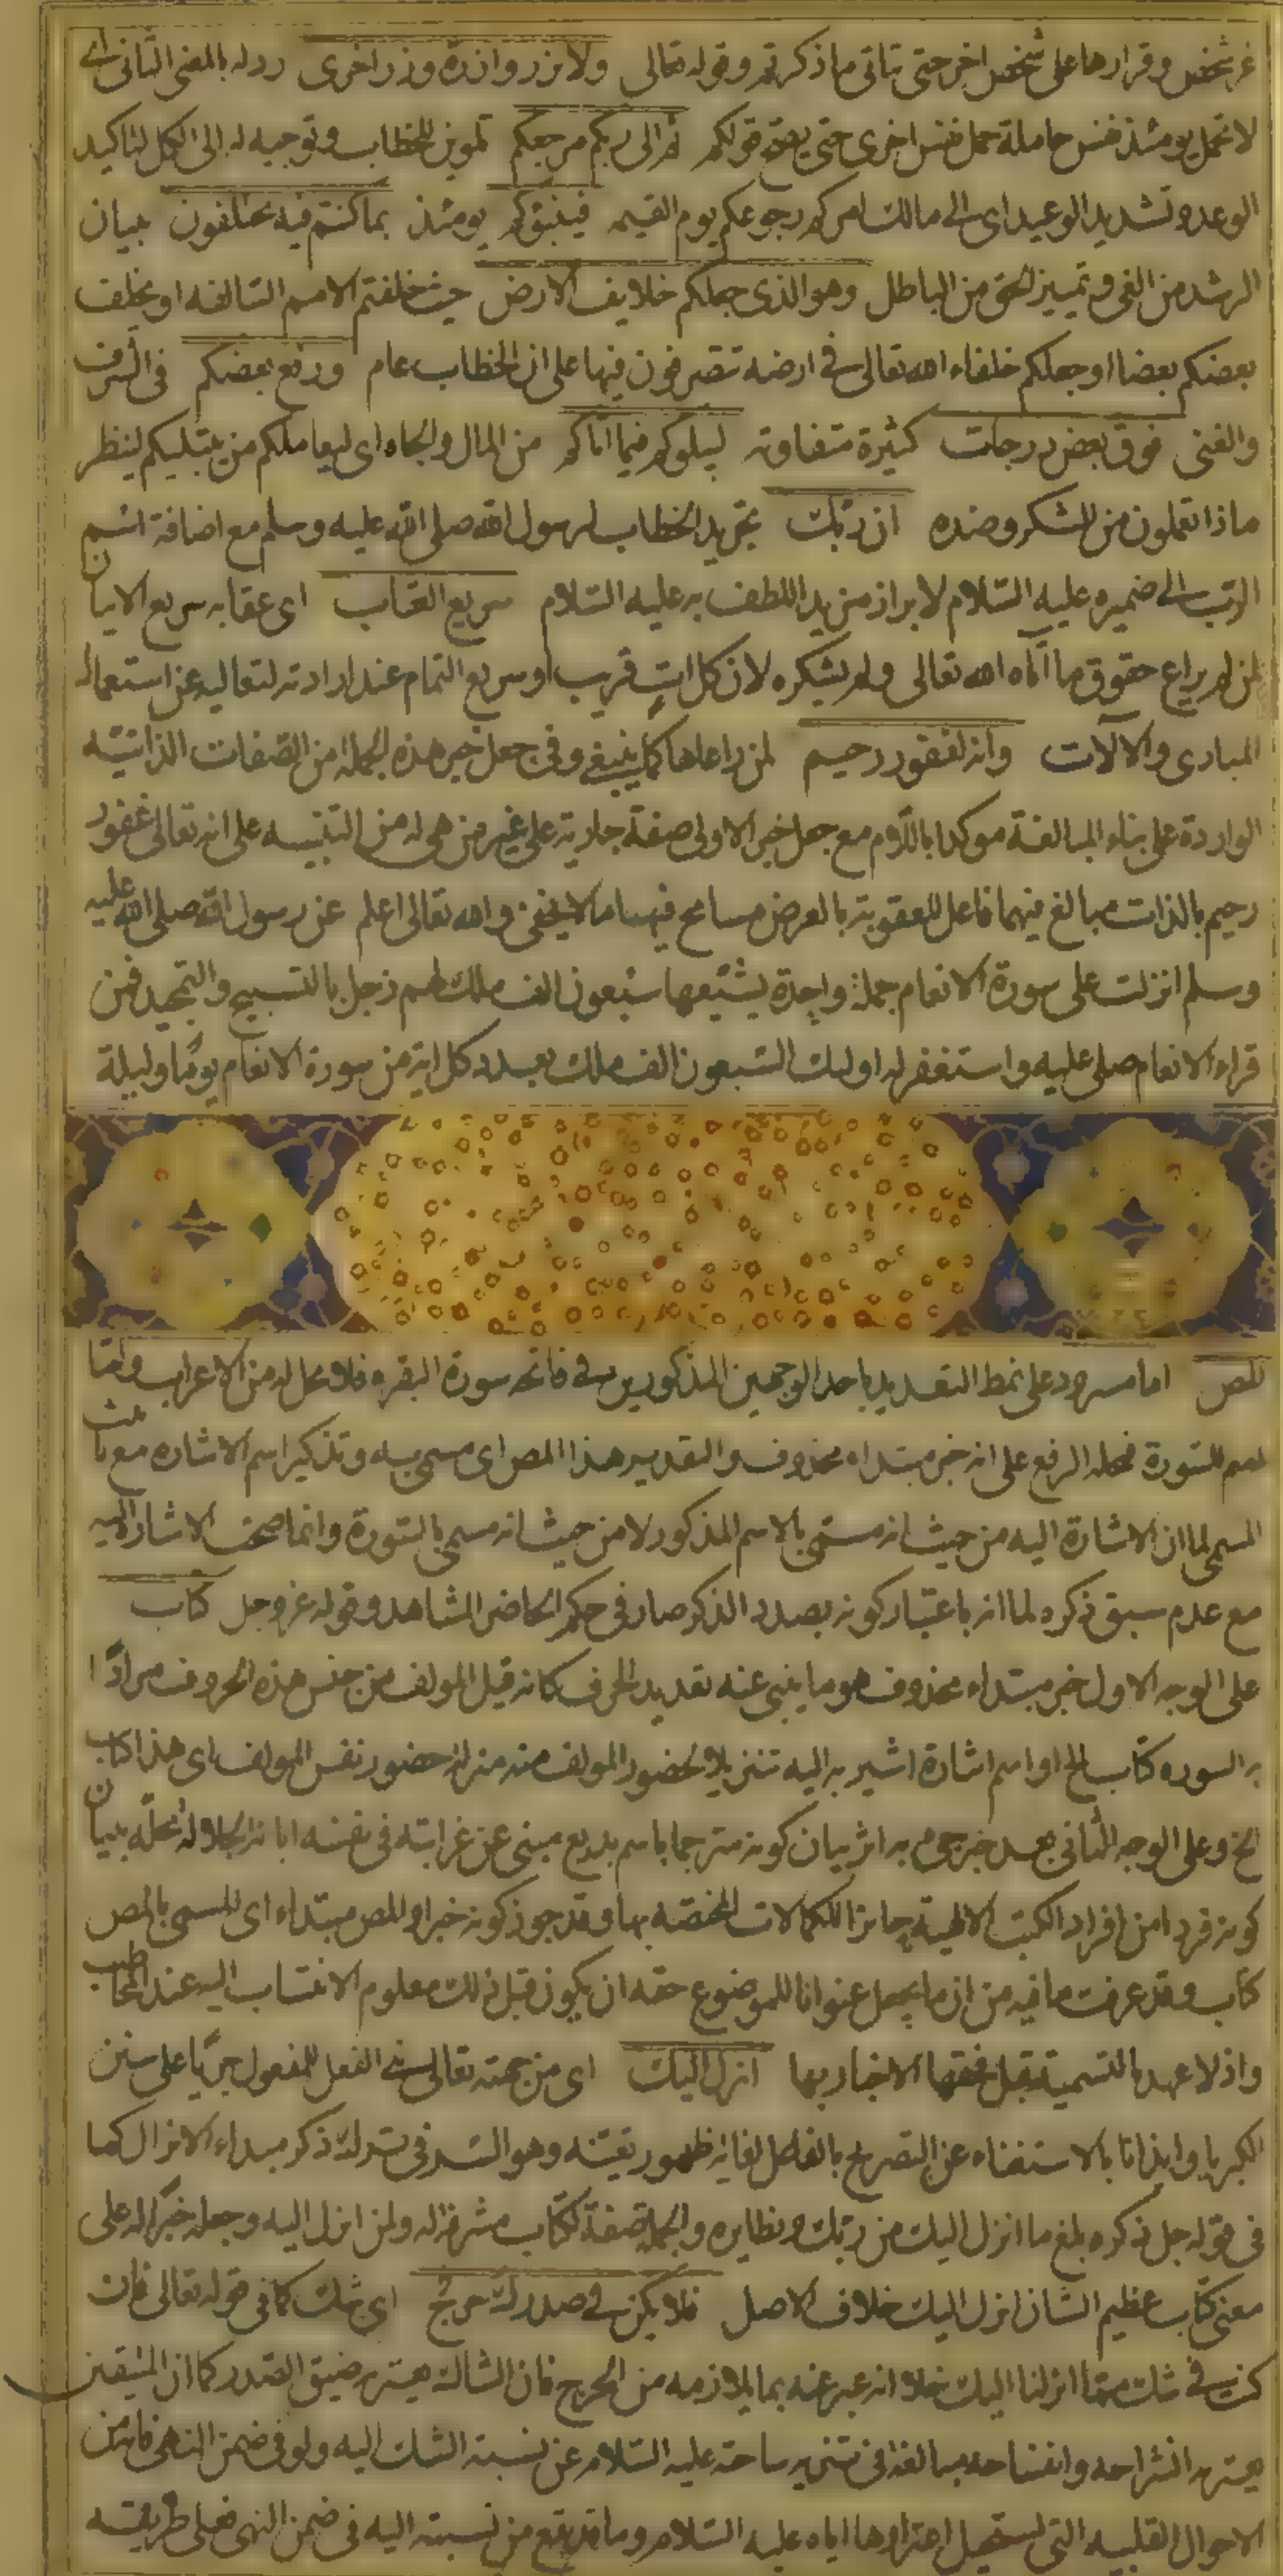 عن شخص وقرارها على شخص اخر حتى يتاتى ما ذكرتم وقوله تعالى ولا تزر وازرة وزر اخرى رد له بالمعنى الثانى اى
لا تحمل يومئذ نفس حاملة حمل نفس اخرى حتى يصح قولكم ثم الى ربكم مرجعكم تلوين للخطاب وتوجيه له الى الكل لتاكيد
الوعد وتشديد الوعيد اى الى مالك امركم رجوعكم يوم القيمه فينبئكم يومئذ بما كنتم فيه تختلفون ببيان
الرشد من الغى وتمييز الحق من الباطل وهو الذى جعلكم خلايف الارض حيث خلفتم الامم السالفه او يخلف
بعضكم بعضا او جعلكم خلفاء الله تعالى فى ارضه تتصرفون فيها على ان الخطاب عام ورفع بعضكم فى الشرف
والغنى فوق بعض درجات كثيرة متفاوته ليبلوكم فيما اتاكم من المال والجاه اى ليعاملكم من يبتليكم لينظر
ماذا تعملون من الشكر وضده ان ربك تجريد الخطاب لرسول الله صلى الله عليه وسلم مع اضافة اسم
الرب الى ضميره عليه السلام لابراز مزيد اللطف به عليه السلام سريع العقاب اى عقابه سريع الاتيان
لمن لم يراع حقوق ما آتاه الله تعالى ولم يشكره لان كل ات قريب او سريع التمام عند ارادته لتعاليه عن استعمال
المبادى والآلات وانه لغفور رحيم لمن راعاها كما ينبغى وفى جعل خبر هذه الجملة من الصفات الذاتيه
الواردة على بناء المبالغة موكدا باللام مع جعل خبر الاولى صفة جارية على غير من هى له من التنبيه على انه تعالى غفور
رحيم بالذات مبالغ فيهما فاعل للعقوبة بالعرض مسامح فيها ما لا يخفى والله تعالى اعلم عن رسول الله صلى الله عليه
وسلم انزلت على سورة الانعام جملة واحدة يشيعها سبعون الف ملك لهم زجل بالتسبيح والتحميد فمن
قراء الانعام صلى عليه واستغفر له اوليك السبعون الف ملك بعدد كل اية من سورة الانعام يوما وليلة
المص اما مسرود على نمط التعديد باحد الوجهين المذكورين فى فاتحه سورة البقره فلا محل له من الاعراب واما
اسم للسورة فمحله الرفع على انه خبر مبتداء محذوف والتقدير هذا المص اى مسمى به وتذكير اسم الاشاره مع تانيث
المسمى لما ان الاشارة اليه من حيث انه مسمى بالاسم المذكور لا من حيث انه مسمى بالسورة وانما صحت الاشارة اليه
مع عدم سبق ذكره لما انه باعتبار كونه بصدد الذكر صار فى حكم الحاضر المشاهد وقوله عز وجل كتاب
على الوجه الاول خبر مبتداء محذوف هو ما ينبى عنه تعديد الحرف كانه قيل المولف من جنس هذه الحروف مرادا
به السوره كتاب الخ او اسم اشارة اشير به اليه تنزيلا لحضور المولف منه منزلة حضور نفس المولف اى هذا كتاب
الخ وعلى الوجه الثانى خبر بعد خبر جئ به اثر بيان كونه مترجما باسم بديع منبى عن غرابته فى نفسه ابانة لجلالة محله ببيان
كونه فردا من افراد الكتب الالهية حايزا للكمالات المختصه بها وقد جوز كونه خبرا والمص مبتداء اى المسمى بالمص
كتاب وقد عرفت ما فيه من ان ما يجعل عنوانا للموضوع حقه ان يكون قبل ذلك معلوم الانتساب اليه عند المخاطب
واذ لا عهد بالتسمية قبل فحقها الاخبار بها انزل اليك اى من جهته تعالى بنى الفعل للمفعول جريا على سنن
الكبريا وايذانا بالاستغناء عن التصريح بالفاعل لغاية ظهور تعينه وهو السر فى ترك ذكر مبداء الانزال كما
فى قوله جل ذكره بلغ ما انزل اليك من ربك ونظايره والجملة صفة لكتاب مشرفة له ولمن انزل اليه وجعله خبرا له على
معنى كتاب عظيم الشان انزل اليك خلاف الاصل فلا يكن فى صدرك حرج اى شك كما فى قوله تعالى فان
كنت فى شك مما انزلنا اليك خلا انه عبر عنه بما يلازمه من الحرج فان الشاك يعتريه ضيق الصدر كما ان المتيقن
يعتريه انشراحه وانفساحه مبالغة فى تنزيه ساحته عليه السلام عن نسبة الشك اليه ولو فى ضمن النهى فانه من
الاحوال القلبيه التى يستحيل اعتراوها اياه عليه السلام وما قد يقع من نسبته اليه فى ضمن النهى فعلى طريقته